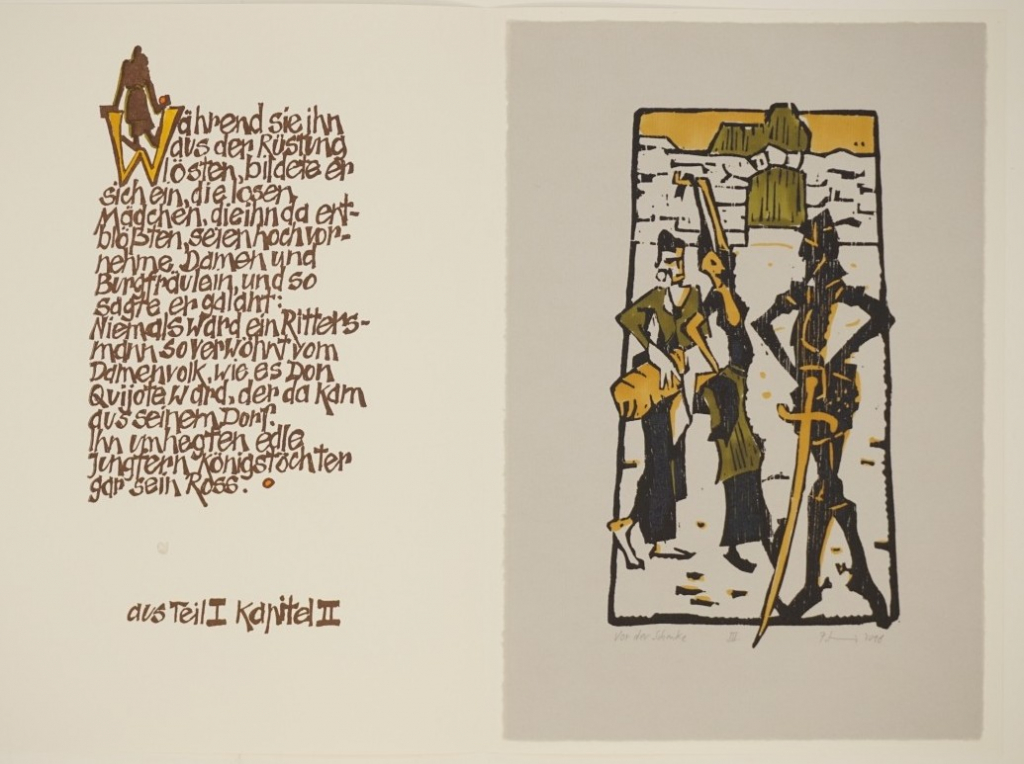 Während sie ihn
aus der Rüstung
lösten, bildete er
sich ein, die losen
Mädchen, die ihn da ent-
blößten, seien hochvor-
nehme Damen und
Burgfräulein, und so
sagte er galant:
Niemals ward ein Ritters-
mann so verwöhnt vom
Damenvolk, wie es Don
Quijote ward, der da kam
aus seinem Dorf.
Ihn umhegten edle
Jungfern, Königstöchter
gar sein Ross.
aus Teil I Kapitel II
Vor der Schenke